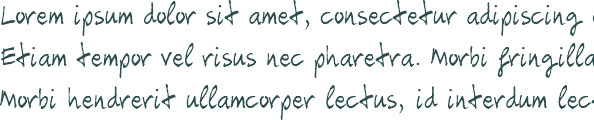 Lorem ipsum dolor sit amet, consectetur adipiscing
Etiam tempor vel risus nec pharetra. Morbi fringilla
Morbi hendrerit ullamcorper lectus, id interdum lec